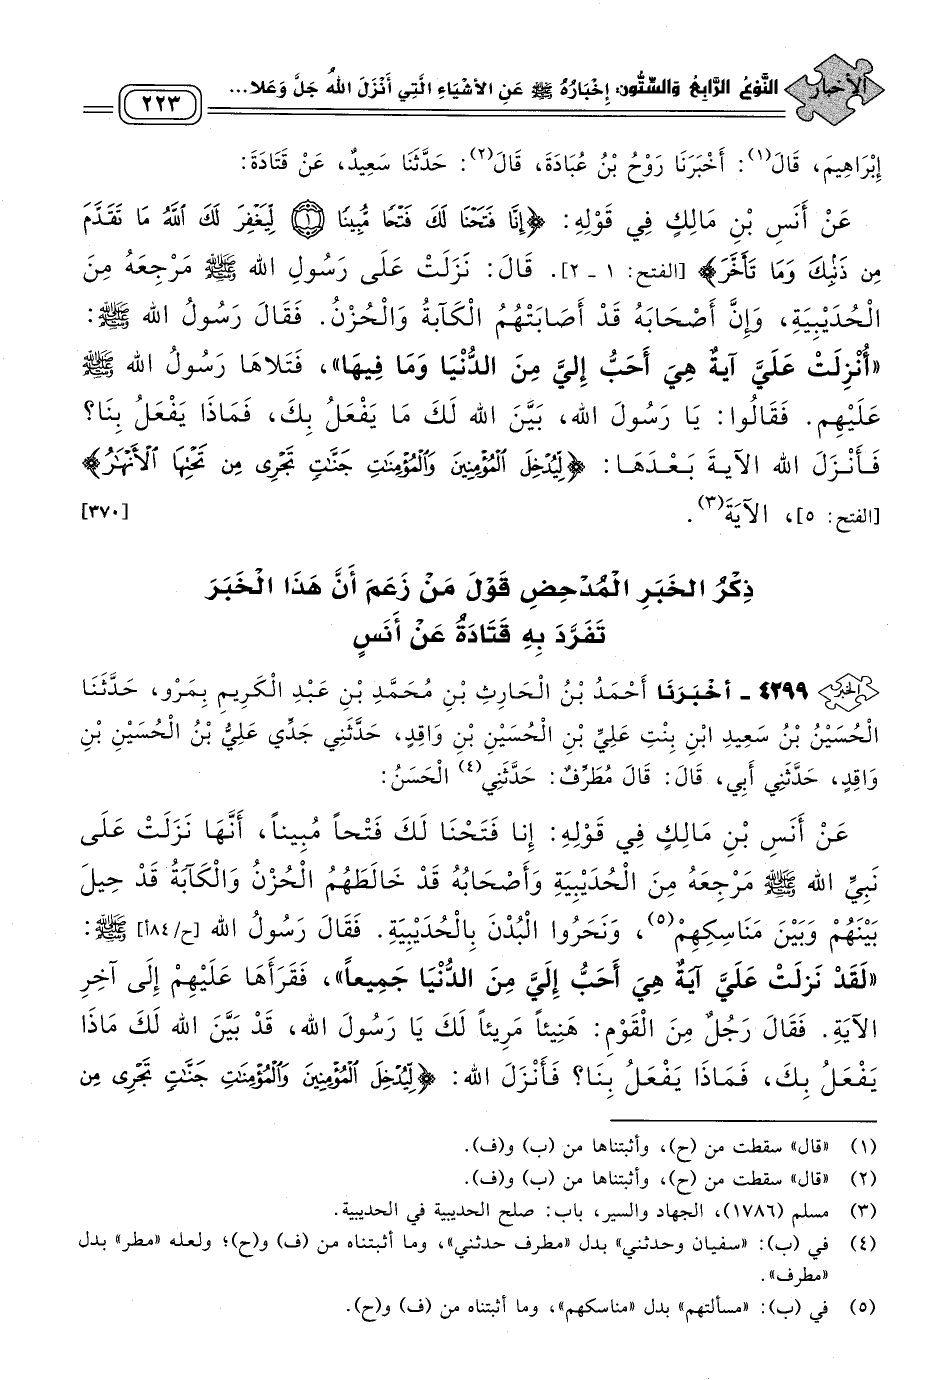 الأخبار النَّوْعُ الرَّابِعُ وَالسِّتُّون: إِخْبَارُهُ ﷺ عَنِ الأَشْيَاءِ الَّتِي أَنْزَلَ اللهُ جَلَّ وَعَلا... ٢٢٣
إِبْرَاهِيمَ، قَالَ(١): أَخْبَرَنَا رَوْحُ بْنُ عُبَادَةَ، قَالَ(٢): حَدَّثَنَا سَعِيدٌ، عَنْ قَتَادَةَ:
عَنْ أَنَسِ بْنِ مَالِكٍ فِي قَوْلِهِ: ﴿إِنَّا فَتَحْنَا لَكَ فَتْحًا مُّبِينًا ۝١ لِّيَغْفِرَ لَكَ ٱللَّهُ مَا تَقَدَّمَ
مِن ذَنۢبِكَ وَمَا تَأَخَّرَ﴾ [الفتح: ١ - ٢]. قَالَ: نَزَلَتْ عَلَى رَسُولِ الله ﷺ مَرْجِعَهُ مِنَ
الْحُدَيْبِيَةِ، وَإِنَّ أَصْحَابَهُ قَدْ أَصَابَتْهُمُ الْكَآبَةُ وَالْحُزْنُ. فَقَالَ رَسُولُ الله ﷺ:
«أُنْزِلَتْ عَلَيَّ آيَةٌ هِيَ أَحَبُّ إِليَّ مِنَ الدُّنْيَا وَمَا فِيهَا»، فَتَلاهَا رَسُولُ الله ﷺ
عَلَيْهِم. فَقَالُوا: يَا رَسُولَ الله، بَيَّنَ الله لَكَ مَا يَفْعَلُ بِكَ، فَمَاذَا يَفْعَلُ بِنَا؟
فَأَنْزَلَ الله الآيَةَ بَعْدَهَا: ﴿لِّيُدْخِلَ ٱلْمُؤْمِنِينَ وَٱلْمُؤْمِنَٰتِ جَنَّٰتٍ تَجْرِى مِن تَحْتِهَا ٱلْأَنْهَٰرُ﴾
[الفتح: ٥]، الآيَةَ(٣). [٣٧٠]
ذِكْرُ الخَبَرِ الْمُدْحِضِ قَوْلَ مَنْ زَعَمَ أَنَّ هَذَا الْخَبَرَ
تَفَرَّدَ بِهِ قَتَادَةُ عَنْ أَنَسٍ
الخبر ٤٢٩٩ - أَخْبَرَنَا أَحْمَدُ بْنُ الْحَارِثِ بْنِ مُحَمَّدِ بْنِ عَبْدِ الْكَرِيمِ بِمَرْو، حَدَّثَنَا
الْحُسَيْنُ بْنُ سَعِيدِ ابْنِ بِنْتِ عَلِيِّ بْنِ الْحُسَيْنِ بْنِ وَاقِدٍ، حَدَّثَنِي جَدِّي عَلِيُّ بْنُ الْحُسَيْنِ بْنِ
وَاقِدٍ، حَدَّثَنِي أَبِي، قَالَ: قَالَ مُطَرِّفٌ: حَدَّثَنِي(٤) الْحَسَنُ:
عَنْ أَنَسِ بْنِ مَالِكٍ فِي قَوْلِهِ: إِنا فَتَحْنَا لَكَ فَتْحاً مُبِيناً، أَنَّهَا نَزَلَتْ عَلَى
نَبِيِّ الله ﷺ مَرْجِعَهُ مِنَ الْحُدَيْبِيَةِ وَأَصْحَابُهُ قَدْ خَالَطَهُمُ الْحُزْنُ وَالْكَآبَةُ قَدْ حِيلَ
بَيْنَهُمْ وَبَيْنَ مَنَاسِكِهِمْ(٥)، وَنَحَرُوا الْبُدْنَ بِالْحُدَيْبِيَةِ. فَقَالَ رَسُولُ الله [ح/١٨٤أ] ﷺ:
«لَقَدْ نَزَلَتْ عَلَيَّ آيَةٌ هِيَ أَحَبُّ إِلَيَّ مِنَ الدُّنْيَا جَمِيعاً»، فَقَرَأَهَا عَلَيْهِمْ إِلَى آخِرِ
الآيَةِ. فَقَالَ رَجُلٌ مِنَ الْقَوْمِ: هَنِيئاً مَرِيئاً لَكَ يَا رَسُولَ الله، قَدْ بَيَّنَ الله لَكَ مَاذَا
يَفْعَلُ بِكَ، فَمَاذَا يَفْعَلُ بِنَا؟ فَأَنْزَلَ الله: ﴿لِّيُدْخِلَ ٱلْمُؤْمِنِينَ وَٱلْمُؤْمِنَٰتِ جَنَّٰتٍ تَجْرِى مِن
(١) «قال» سقطت من (ح)، وأثبتناها من (ب) و(ف).
(٢) «قال» سقطت من (ح)، وأثبتناها من (ب) و(ف).
(٣) مسلم (١٧٨٦)، الجهاد والسير، باب: صلح الحديبية في الحديبية.
(٤) في (ب): «سفيان وحدثني» بدل «مطرف حدثني»، وما أثبتناه من (ف) و(ح)؛ ولعله «مطر» بدل
«مطرف».
(٥) في (ب): «مسألتهم» بدل «مناسكهم»، وما أثبتناه من (ف) و(ح).